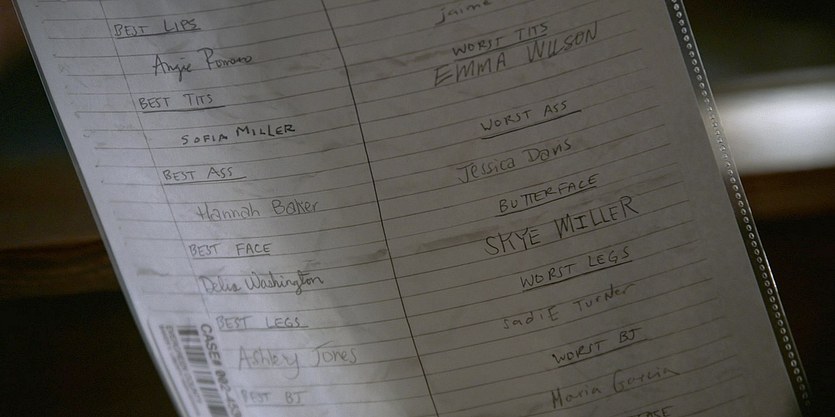 BEST LIPS
Angie Romano
BEST TITS
SOFIA MILLER
BEST ASS
Hannah Baker
BEST FACE
Delia Washington
BEST LEGS
Ashley Jones
BEST BJ
jaime
WORST TITS
EMMA WILSON
WORST ASS
Jessica Davis
BUTTERFACE
SKYE MILLER
WORST LEGS
SadiE Turner
WORST BJ
Maria Garcia
CASE#